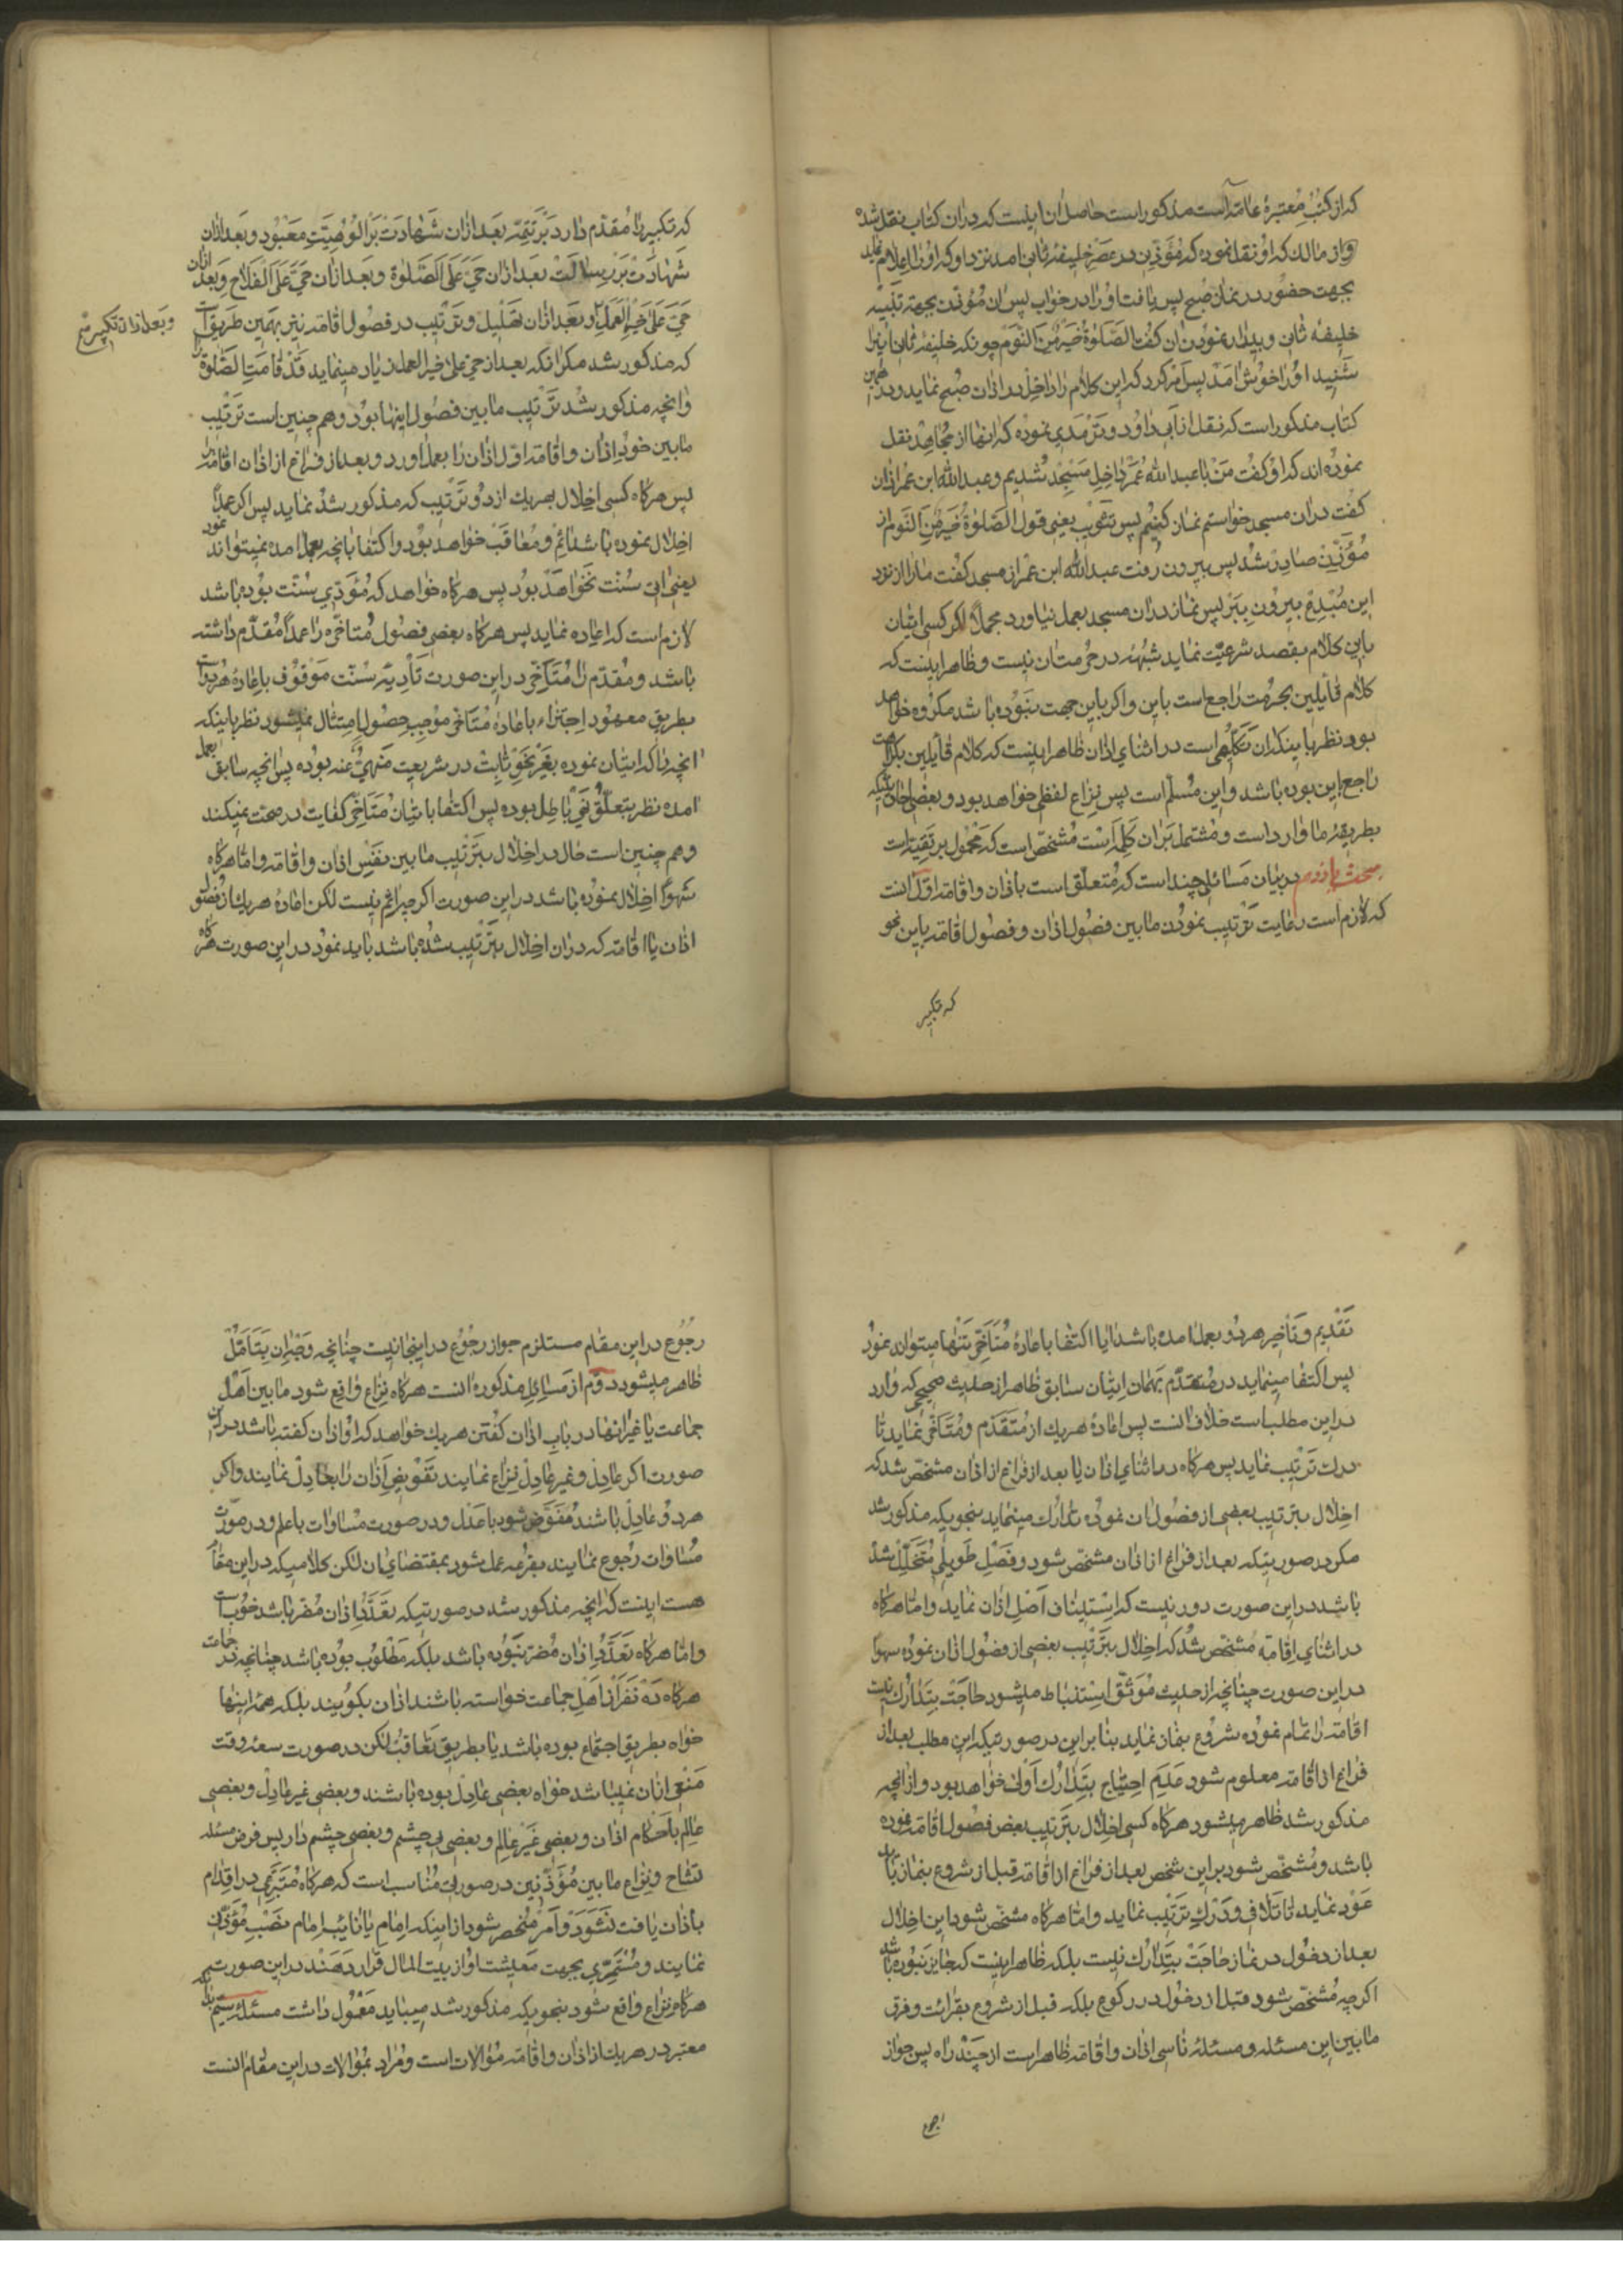 که از کتب معتبرهٔ عامه است مذکور است حاصل ان اینست که در ان کتاب نقل شده
واز مالک که او نقل نموده که مؤذن در عصر خلیفهٔ ثانی امد نزد او که او را اعلام نماید
بجهت حضور در نماز صبح پس یافت او را در خواب پس ان مؤذن بجهة تنبیه
خلیفه ثانی و بیدار نمودن ان کفت الصلوة خیر من النوم چونکه خلیفهٔ ثانی اینرا
شنید او را خوش امد پس امر کرد که این کلام را داخل در اذان صبح نماید و در همین
کتاب مذکور است که نقل از ابی داود و ترمذی نموده که اینها از مجاهد نقل
نموده اند که او کفت من با عبد الله عمر داخل مسجد شدیم و عبد الله ابن عمر اذان
کفت در ان مسجد خواستم نماز کنیم پس تثویب یعنی قول الصلوة خیر من النوم از
مؤذن صادر شد پس بیرون رفت عبد الله ابن عمر از مسجد کفت ما را از نزد
این مبدع بیرون ببر پس نماز در ان مسجد بعمل نیاورد مجملا اکر کسی اتیان
باین کلام بقصد شرعیت نماید شبههٔ در حرمت ان نیست و ظاهر اینست که
کلام قائلین بحرمت راجع است باین و اکر باین جهت نبوده باشد مکروه خواهد
بود نظر باینکه ان تکلمی است در اثنای اذان ظاهر اینست که کلام قائلین بکراهت
راجع باین بوده باشد و این مسلم است پس نزاع لفظی خواهد بود و بعضی اخباریکه
بطریقهٔ ما وارد است و مشتمل بر ان کلمه است مشخص است که محمول بر تقیه است
مبحث یازدهم در بیان مسائل چند است که متعلق است باذان و اقامه اول انست
که لازم است رعایت ترتیب نمودن مابین فصول اذان و فصول اقامه باین نحو
که تکبیر
که تکبیر را مقدم دارد بر تتمه بعد ازان شهادت بر الوهیت معبود و بعد ازان
شهادت بر رسالت بعد ازان حی علی الصلوة و بعد ازان حی علی الفلاح و بعد ازان
حی علی خیر العمل و بعد ازان تهلیل و ترتیب در فصول اقامه نیز بهمین طریق است
و بعد ازان تکبیر
که مذکور شد مکر انکه بعد از حی علی خیر العمل زیاد مینماید قد قامت الصلوة را
وانچه مذکور شد ترتیب مابین فصول اینها بود و هم چنین است ترتیب
مابین خود اذان و اقامه اول اذان را بعمل اورد و بعد از فراغ از اذان اقامه را
پس هرکاه کسی اخلال بهر یک از دو ترتیب که مذکور شد نماید پس اکر عمدا
اخلال نموده باشد اثم و معاقب خواهد بود و اکتفا بانچه بعمل امده نمیتواند نمود
یعنی اتی سنت نخواهد بود پس هرکاه خواهد که مؤدی سنت بوده باشد
لازم است که اعاده نماید پس هرکاه بعضی فصول متاخره را عمدا مقدم داشته
باشد و مقدم را متاخر در این صورت تأدیهٔ سنت موقوف باعادهٔ هر دو است
بطریق معهود اجتزاء باعادهٔ متاخر موجب حصول امتثال نمیشود نظر باینکه
انچه را که اتیان نموده بغیر نحو ثابت در شریعت منهی عنه بوده پس انچه سابق بعمل
امده نظر بتعلق نهی باطل بوده پس اکتفا باتیان متاخر کفایت در صحت نمیکند
و هم چنین است حال در اخلال بترتیب مابین نفس اذان و اقامه و اما هرکاه
سهوا اخلال نموده باشد در این صورت اکر چه اثم نیست لکن اعادهٔ هر یک از فصول
اذان یا اقامه که در ان اخلال بترتیب شده باشد باید نمود در این صورت هرکاه
تقدیم و تاخیر هر دو بعمل امده باشد ایا اکتفا باعادهٔ متاخر تنها میتواند نمود
پس اکتفا مینماید در متقدم بهمان اتیان سابق ظاهر از حدیث صحیحی که وارد
در این مطلب است خلاف انست پس اعادهٔ هر یک از متقدم و متاخر نماید تا
درک ترتیب نماید پس هرکاه در اثنای اذان یا بعد از فراغ از اذان مشخص شد که
اخلال بترتیب بعضی از فصول ان نموده تدارک مینماید بنحویکه مذکور شد
مکر در صورتیکه بعد از فراغ از اذان مشخص شود و فصل طویلی متخلل شده
باشد در این صورت دور نیست که استیناف اصل اذان نماید و اما هرکاه
در اثنای اقامه مشخص شد که اخلال بترتیب بعضی از فصول اذان نموده سهوا
در این صورت چنانچه از حدیث موثق استنباط میشود حاجت بتدارک نیست
اقامه را تمام نموده شروع بنماز نماید بنابراین در صورتیکه این مطلب بعد از
فراغ از اقامه معلوم شود عدم احتیاج بتدارک اولی خواهد بود و از انچه
مذکور شد ظاهر میشود هرکاه کسی اخلال بترتیب بعض فصول اقامه نموده
باشد و مشخص شود بر این شخص بعد از فراغ از اقامه قبل از شروع بنماز باید
عود نماید تا تلافی و درک ترتیب نماید و اما هرکاه مشخص شود این اخلال
بعد از دخول در نماز حاجت بتدارک نیست بلکه ظاهر اینست که جایز نبوده باشد
اکر چه مشخص شود قبل از دخول در رکوع بلکه قبل از شروع بقرائت و فرق
مابین این مسئله و مسئلهٔ ناسی اذان و اقامه ظاهر است از چند راه پس جواز
رجوع
رجوع در این مقام مستلزم جواز رجوع در اینجا نیست چنانچه وجه ان بتامل
ظاهر میشود دوم از مسائل مذکوره انست هرکاه نزاع واقع شود مابین اهل
جماعت یا غیر انها در باب اذان کفتن هر یک خواهد که او اذان کفته باشد در این
صورت اکر عادل و غیر عادل نزاع نمایند تفویض اذان را بعادل نمایند و اکر
هر دو عادل باشند مفوض شود باعدل و در صورت مساوات باعلم و در صورت
مساوات رجوع نمایند بقرعه عمل شود بمقتضای ان لکن کلامیکه در این مقام
هست اینست که انچه مذکور شد در صورتیکه تعدد اذان مضر باشد خوبست
و اما هرکاه تعدد اذان مضر نبوده باشد بلکه مطلوب بوده باشد چنانچه در جماعت
هرکاه ده نفر از اهل جماعت خواسته باشند اذان بکویند بلکه همهٔ اینها
خواه بطریق اجتماع بوده باشد یا بطریق تعاقب لکن در صورت سعهٔ وقت
منع از ان نمیباشد خواه بعضی عادل بوده باشند و بعضی غیر عادل و بعضی
عالم باحکام اذان و بعضی غیر عالم و بعضی بی چشم و بعضی چشم دار پس فرض مسئله
تشاح و نزاع مابین مؤذنین در صورت مناسب است که هرکاه متبرعی در اقدام
باذان یافت نشود و امر منحصر شود از اینکه امام یا نایب امام نصب مؤذن
نمایند و مستمری بجهت معیشت او از بیت المال قرار دهند در این صورت
هرکاه نزاع واقع شود بنحویکه مذکور شد میباید معمول داشت مسئلهٔ سیم
معتبر در هر یک از اذان و اقامه موالات است و مراد بموالات در این مقام انست